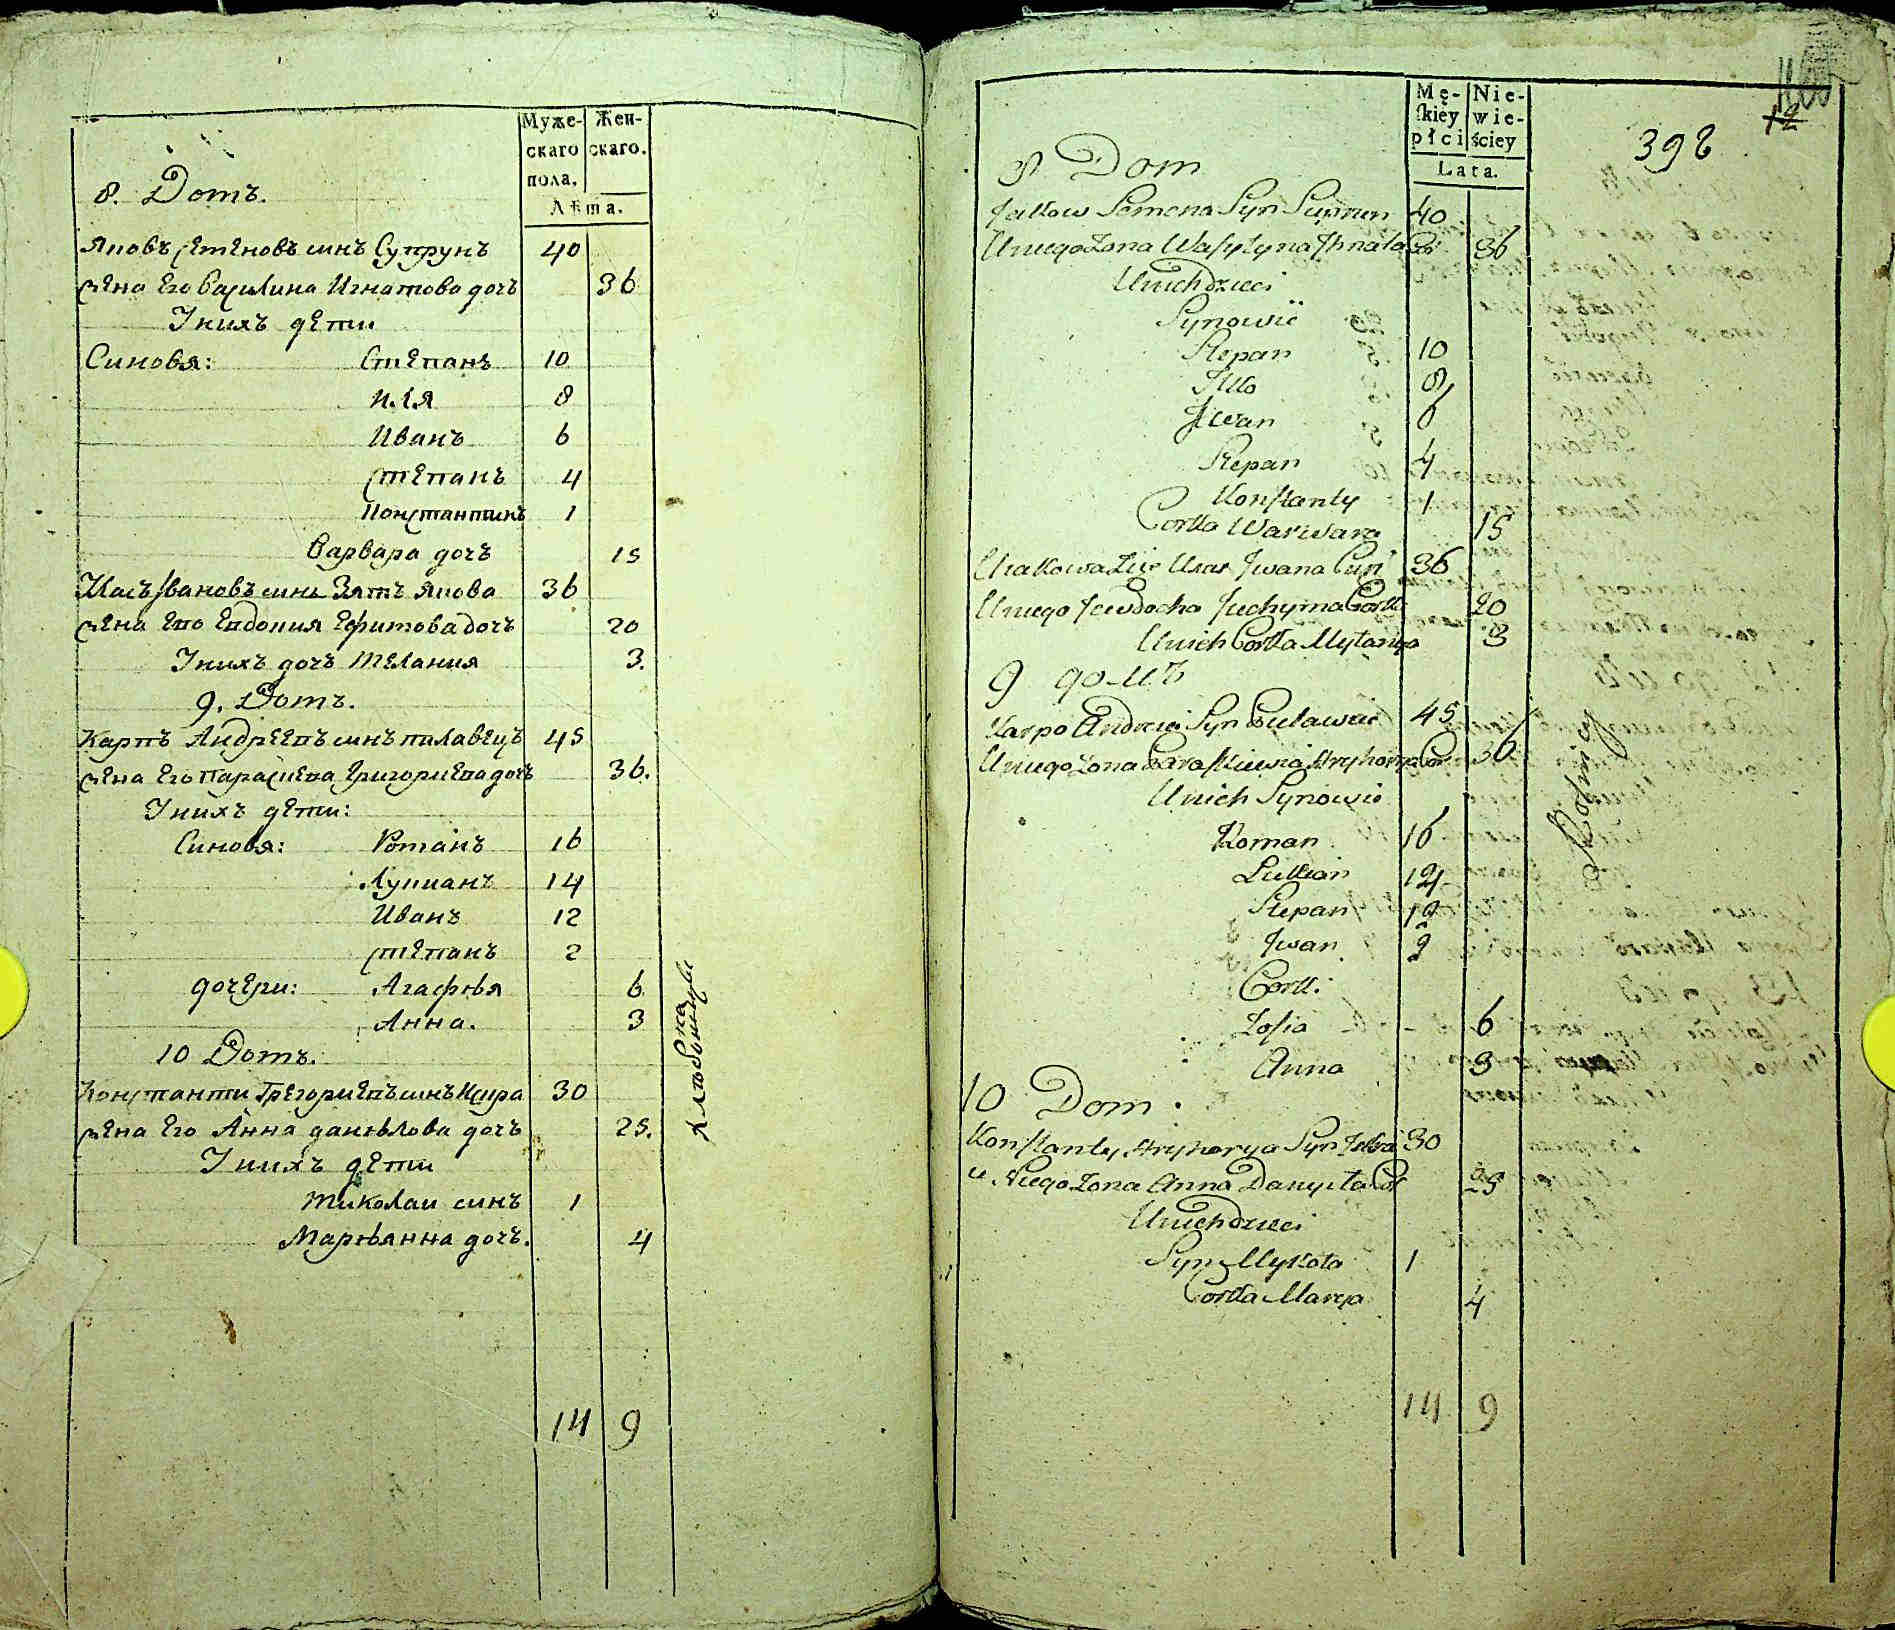 Муже-
скаго
пола.
Жен-
скаго.
Лѣта.
8. Домъ.
Яковъ Семеновъ синъ Супрунъ 40
жена Его Василина Игнатова дочъ 36
Унихъ дети
Синовя: Степанъ 10
Иля 8
Иванъ 6
Степанъ 4
Константинъ 1
Варвара дочъ 15
Ивановъ синъ Зятъ Якова 36
жена Его Евдокия Ефимова дочъ 20
Унихъ дочъ Мелания 3.
9. Домъ.
Карпъ Андреевъ синъ Пилавецъ 45
жена Его Параскева Григориева дочъ 36.
Унихъ дети:
Синовя: Романъ 16
Лукианъ 14
Иванъ 12
Степанъ 2
дочери: Агафѣя 6
Анна. 3
10 Домъ.
Константи Грегориевъ синъ 30
жена Его Анна данѣлова дочъ 25.
Унихъ дети
Миколаи синъ 1
Марѣянна дочъ. 4
14 9
Хлѣбопашцы
Mę-
skiéy
płci
Nie-
wie-
ściey
Lata.
12
398
8 Dom
Jakow Semena Syn Suprun 40
Uniego Zona Wasylyna Ihnata Cor 36
Unich dzieci
Synowie
Stepan 10
Illo 8
Iwan 6
Stepan 4
Konstanty 1
Corka Warwara 15
Iwana Syn 36
Uniego Jewdocha Juchyma Corka 20
Unich Corka Mylanya 3
9 домъ
Karpo Andreia Syn 45
Uniego Zona Paraskiewia Hryhorya Cor 36
Unich Synowie
Roman 16
Lukian 14
Stepan 12
Iwan 2
Cork:
Zofia 6
Anna 3
10 Dom
Konstanty Hryhorya Syn 30
u Niego Zona Anna Danyła Cor 25
Unich dzieci
Syn Mykoła 1
Corka Marya 4
14 9
Rolnicy